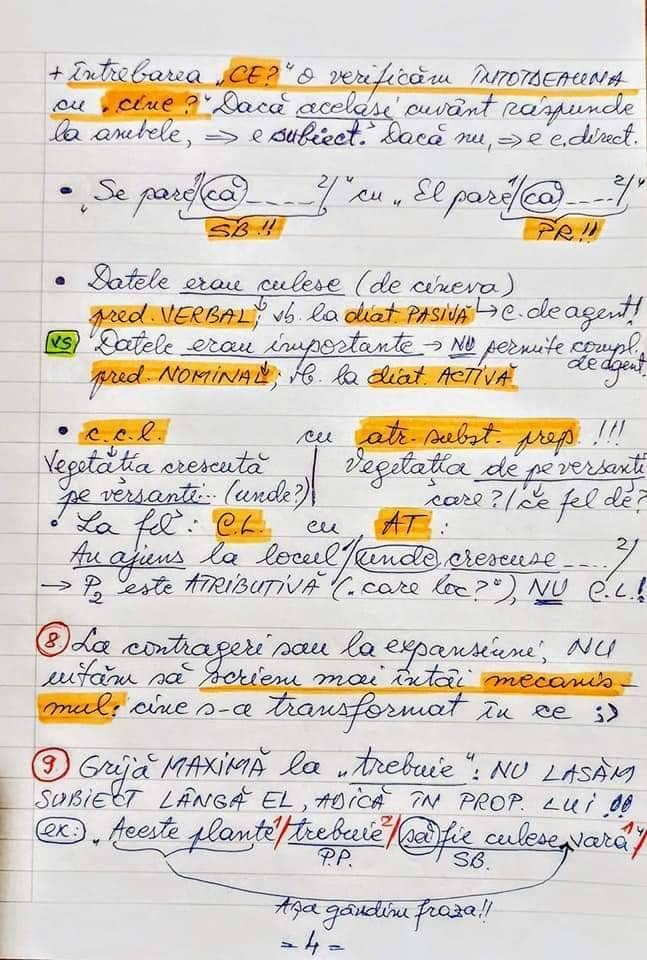 + întrebarea „CE?“ o verificăm ÎNTOTDEAUNA
cu „cine?“ Dacă același cuvânt răspunde
la ambele, ⇒ e subiect. Dacă nu, ⇒ e c. direct.
• „Se pare¹/ că ....²/“ cu „El pare¹/ că ....²/“
SB!! PR!!
• Datele erau culese (de cineva)
pred. VERBAL; vb. la diat. PASIVĂ → c. de agent!
VS Datele erau importante → NU permite compl.
de agent
pred. NOMINAL; vb. la diat. ACTIVĂ
• c.c.l. cu atr. subst. prep. !!!
Vegetația crescută | Vegetația de pe versanți
pe versanți... (unde?) | care?/ ce fel de?
• La fel: C.L. cu AT:
Au ajuns la locul¹/ unde crescuse ....²/
→ P₂ este ATRIBUTIVĂ („care loc?“), NU C.L.!
⑧ La contrageri sau la expansiuni, NU
uităm să scriem mai întâi mecanis-
mul: cine s-a transformat în ce ;)
⑨ Grijă MAXIMĂ la „trebuie“: NU LASĂM
SUBIECT LÂNGĂ EL, ADICĂ ÎN PROP. LUI!!
ex: „Aceste plante¹/ trebuie²/ să fie culese vara¹/“
P.P. SB.
Așa gândim fraza!!
= 4 =